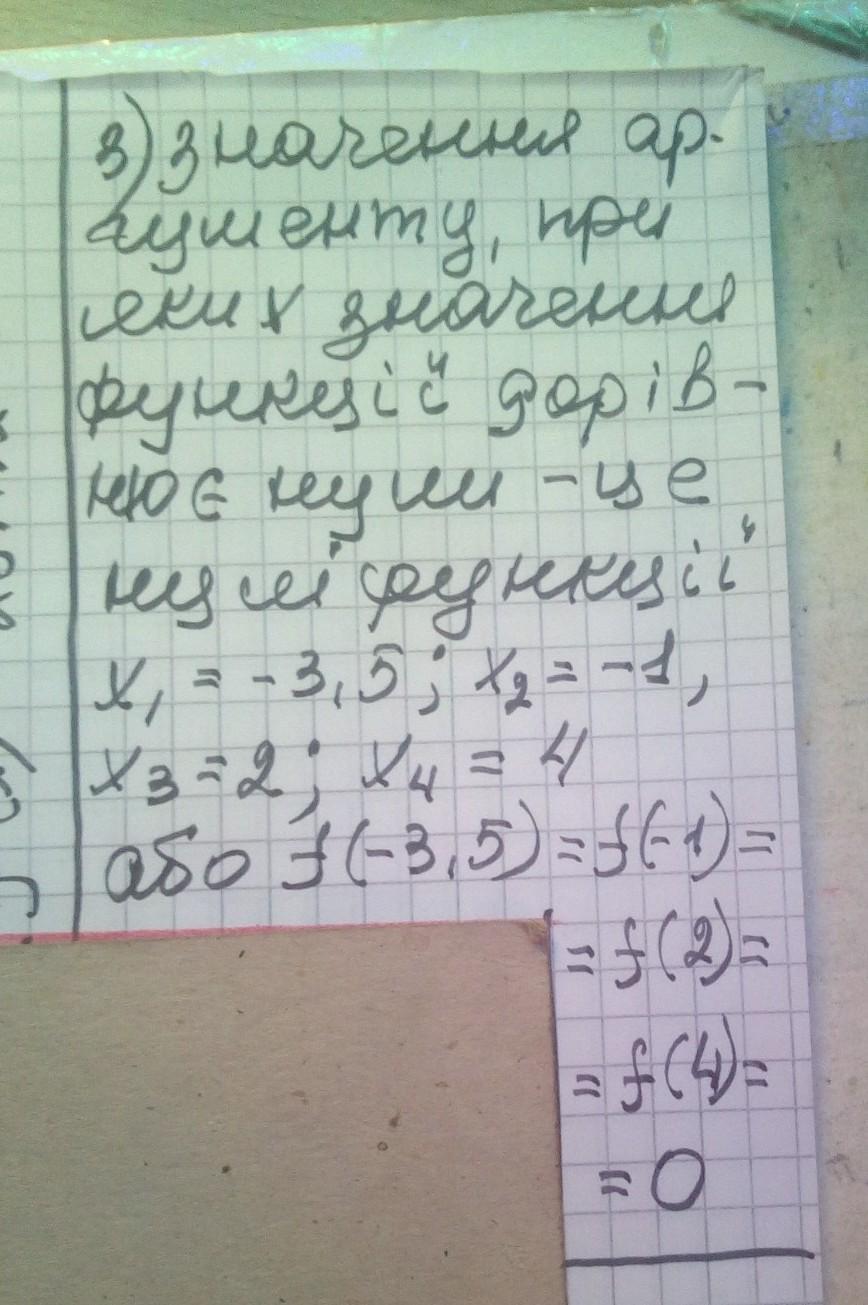 3) Значення ар-
гументу, при
яких значення
функції дорів-
нює нулю - це
нулі функції
x₁ = -3,5; x₂ = -1,
x₃ = 2; x₄ = 4
або f(-3,5) = f(-1) =
= f(2) =
= f(4) =
= 0